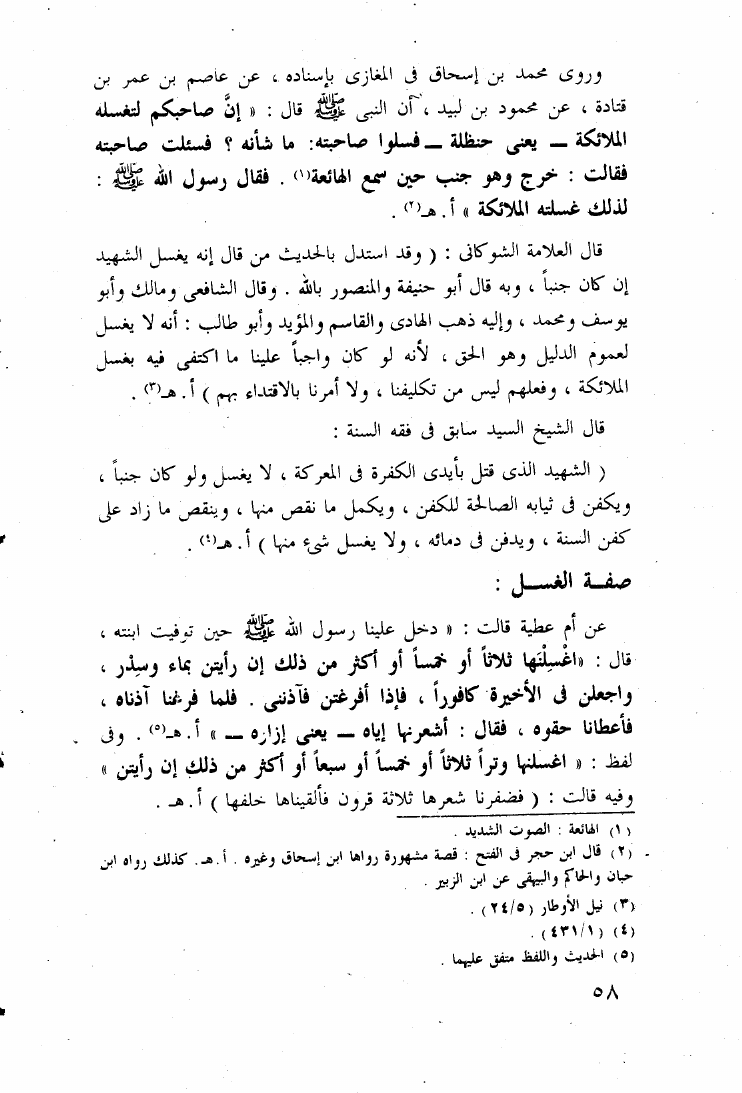 وروى محمد بن إسحاق فى المغازى بإسناده ، عن عاصم بن عمر بن
قتادة ، عن محمود بن لبيد ، أن النبى ﷺ قال : « إنَّ صاحبكم لتغسله
الملائكة ــ يعنى حنظلة ــ فسلوا صاحبته: ما شأنه ؟ فسئلت صاحبته
فقالت : خرج وهو جنب حين سمع الهائعة(١) . فقال رسول الله ﷺ :
لذلك غسلته الملائكة » أ . هـ(٢) .
قال العلامة الشوكانى : ( وقد استدل بالحديث من قال إنه يغسل الشهيد
إن كان جنباً ، وبه قال أبو حنيفة والمنصور بالله . وقال الشافعى ومالك وأبو
يوسف ومحمد ، وإليه ذهب الهادى والقاسم والمؤيد وأبو طالب : أنه لا يغسل
لعموم الدليل وهو الحق ، لأنه لو كان واجباً علينا ما اكتفى فيه بغسل
الملائكة ، وفعلهم ليس من تكليفنا ، ولا أمرنا بالاقتداء بهم ) أ . هـ(٣) .
قال الشيخ السيد سابق فى فقه السنة :
( الشهيد الذى قتل بأيدى الكفرة فى المعركة ، لا يغسل ولو كان جنباً ،
ويكفن فى ثيابه الصالحة للكفن ، ويكمل ما نقص منها ، وينقص ما زاد على
كفن السنة ، ويدفن فى دمائه ، ولا يغسل شىء منها ) أ . هـ(٤) .
صفـة الغســل :
عن أم عطية قالت : « دخل علينا رسول الله ﷺ حين توفيت ابنته ،
قال : «اغْسِلْنَها ثلاثاً أو خمساً أو أكثر من ذلك إن رأيتن بماء وسِدْر ،
واجعلن فى الأخيرة كافوراً ، فإذا أفرغتن فآذننى . فلما فرغنا آذناه ،
فأعطانا حقوه ، فقال : أشعرنها إياه ــ يعنى إزاره ــ » أ . هـ(٥) . وفى
لفظ : « اغسلنها وتراً ثلاثاً أو خمساً أو سبعاً أو أكثر من ذلك إن رأيتن »
وفيه قالت : ( فضفرنا شعرها ثلاثة قرون فألقيناها خلفها ) أ . هـ .
(١) الهائعة : الصوت الشديد .
(٢) قال ابن حجر فى الفتح : قصة مشهورة رواها ابن إسحاق وغيره . أ . هـ . كذلك رواه ابن
حبان والحاكم والبيهقى عن ابن الزبير .
(٣) نيل الأوطار (٢٤/٥) .
(٤) (٤٣١/١) .
(٥) الحديث واللفظ متفق عليهما .
٥٨